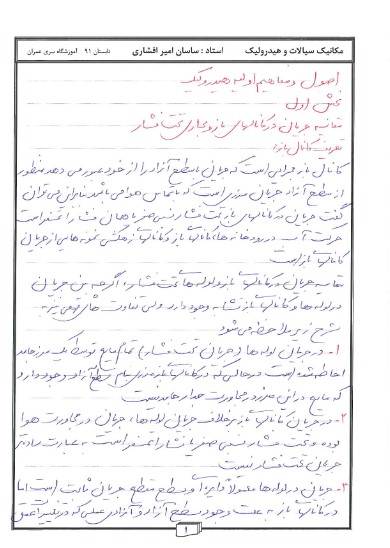 مکانیک سیالات و هیدرولیک استاد : ساسان امیر افشاری تابستان ۹۱ آموزشگاه سری عمران
اصول و مفاهیم اولیه هیدرولیک
بخش اول
مقایسه جریان در کانالهای باز و مجاری تحت فشار
تعریف کانال باز:
کانال باز مجرایی است که جریان با سطح آزاد را از خود عبور می دهد منظور
از سطح آزاد جریان مرزی است که با تماس هوا می باشد بنابراین می توان
گفت جریان در کانالهای باز تحت فشار نسبی صفر یا همان فشار اتمسفر است
حرکت آب در رودخانه ها کانالهای باز و کانالهای زهکشی نمونه هایی از جریان
کانالهای باز است
مقایسه جریان در کانالهای باز و لوله های تحت فشار: اگرچه بین جریان
در لوله ها و کانالهای باز تشابه وجود دارد ولی تفاوت های مهمی نیز به
شرح زیر ملاحظه می شود
۱- در جریان لوله ها (جریان تحت فشار) تمام مایع توسط یک مرز جامد
احاطه شده است در حالی که در کانالهای باز مرزی بنام سطح آزاد وجود دارد
که مایع در این مرز در مجاورت جدار جامد نیست
۲- در جریان کانالهای باز برخلاف جریان لوله ها، جریان در مجاورت هوا
بوده و تحت فشار نسبی صفر یا فشار اتمسفر است به عبارت ساده تر
جریان تحت فشار نیست
۳- جریان در لوله ها معمولا دایره ای و سطح مقطع جریان ثابت است اما
در کانالهای باز به علت وجود سطح آزاد و آزادی عملی که در تغییر عمق
۱